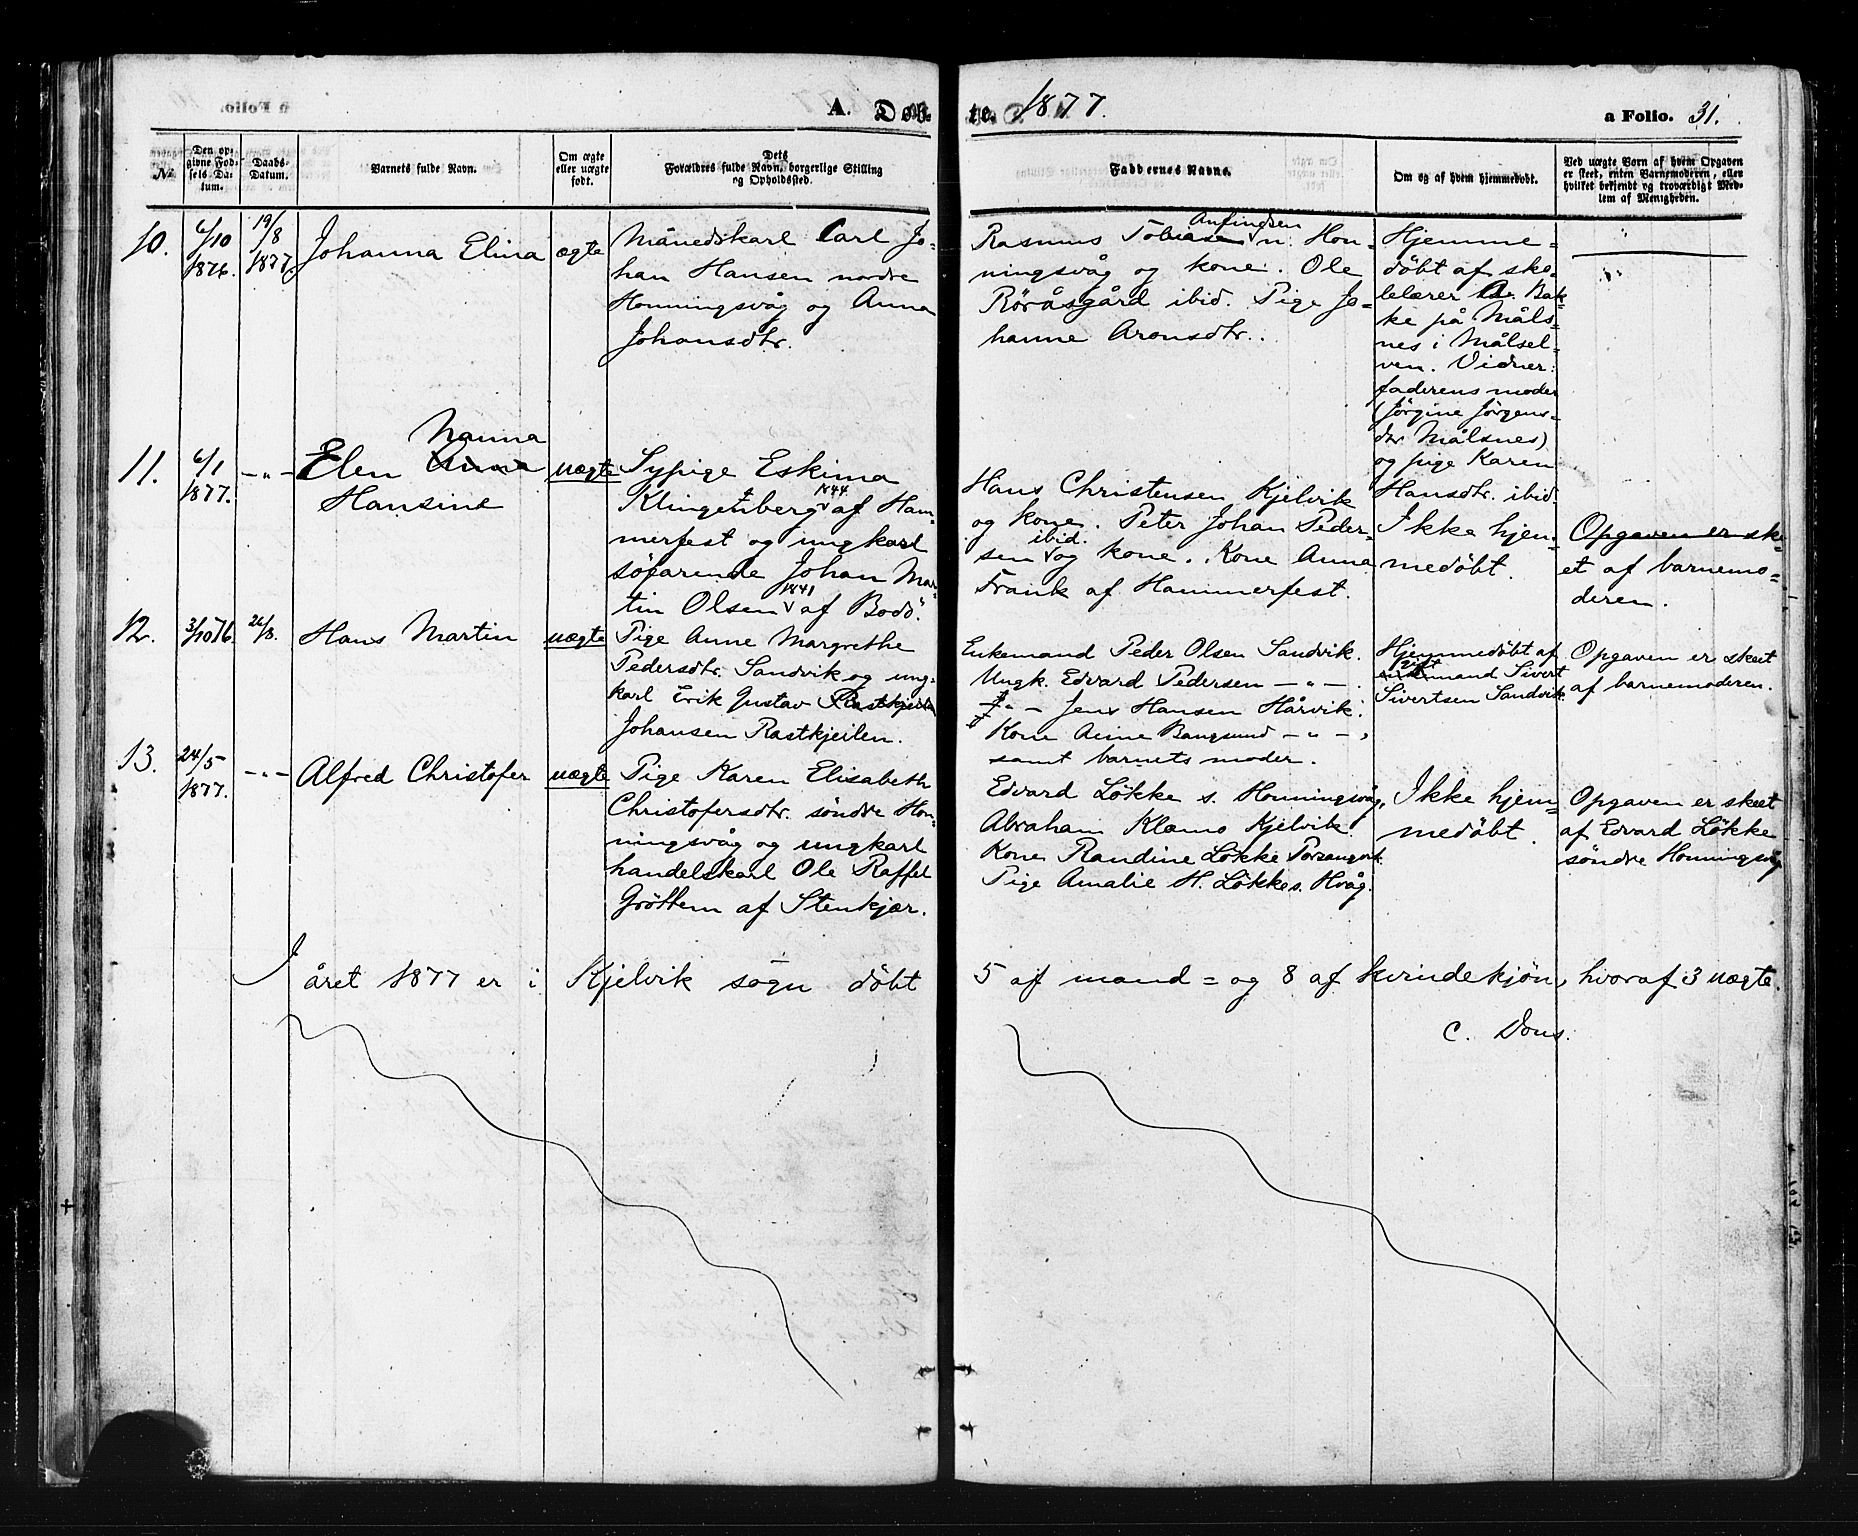 A. Døb-
te. 1877.
a Folio. 31.
No.
Den op-
givne Fød-
sels Da-
tum.
Daabs-
Datum.
Barnets fulde Navn.
Om ægte
eller uægte
født.
Dets
Forældres fulde Navn, borgerlige Stilling
og Opholdssted.
Faddernes Navne.
Om og af hvem hjemmedøbt.
Ved uægte Børn af hvem Opgaven
er skeet, enten Barnemoderen, eller
hvilket bekjendt og troværdigt Med-
lem af Menigheden.
10.
6/10
1876.
19/8
1877.
Johanna Elina
ægte
Månedskarl Carl Jo-
han Hansen nordre
Honningsvåg og Anna
Johansdtr.
Anfindsen
Rasmus Tobiasen n. Hon-
ningsvåg og kone. Ole
Röråsgård ibid. Pige Jo-
hanne Aronsdtr.
Hjemme-
döbt af sko-
lelærer Bak-
ke på Måls-
nes i Målsel-
ven. Vidner:
faderens moder
(Jörgine Jörgens-
dtr Målsnes)
og pige Karen
Hansdtr. ibid.
11.
6/1
1877.
– " –
Nanna
Elen Anna
Hansine
uægte
Sypige Eskima
Klingenberg 1844 af Ham-
merfest og ungkarl
söfarende Johan Mar-
tin Olsen 1841 af Bodö.
Hans Christensen Kjelvik
og kone. Peter Johan Peder-
sen ibid. og kone. Kone Anna
Frank af Hammerfest.
Ikke hjem-
medöbt.
Opgaven er ske-
et af barnemo-
deren.
12.
3/10 76.
26/8.
Hans Martin
uægte
Pige Anne Margrethe
Pedersdtr. Sandvik og ung-
karl Erik Gustav Rastkjeilen
Johansen Rastkjeilen.
Enkemand Peder Olsen Sandvik.
Ungk. Edvard Pedersen – " –.
– " – Jens Hansen Hårvik.
Kone Anne Bangsund – " –,
samt barnets moder.
Hjemmedöbt af
gift
mand Sivert
Sivertsen Sandvik.
Opgaven er skeet
af barnemoderen.
13.
24/5
1877.
– " –
Alfred Christofer
uægte
Pige Karen Elisabeth
Christofersdtr. söndre Hon-
ningsvåg og ungkarl
handelskarl Ole Raffel
Gröttem af Stenkjær.
Edvard Lökke s. Honningsvåg,
Abraham Klæmo Kjelvik.
Kone Randine Lökke Porsanger.
Pige Amalie H. Lökke s. Hvåg.
Ikke hjem-
medöbt.
Opgaven er skeet
af Edvard Lökke
söndre Honningsvåg
I året 1877 er i Kjelvik sogn döbt 5 af mand = og 8 af kvindekjön, hvoraf 3 uægte.
C. Dons.